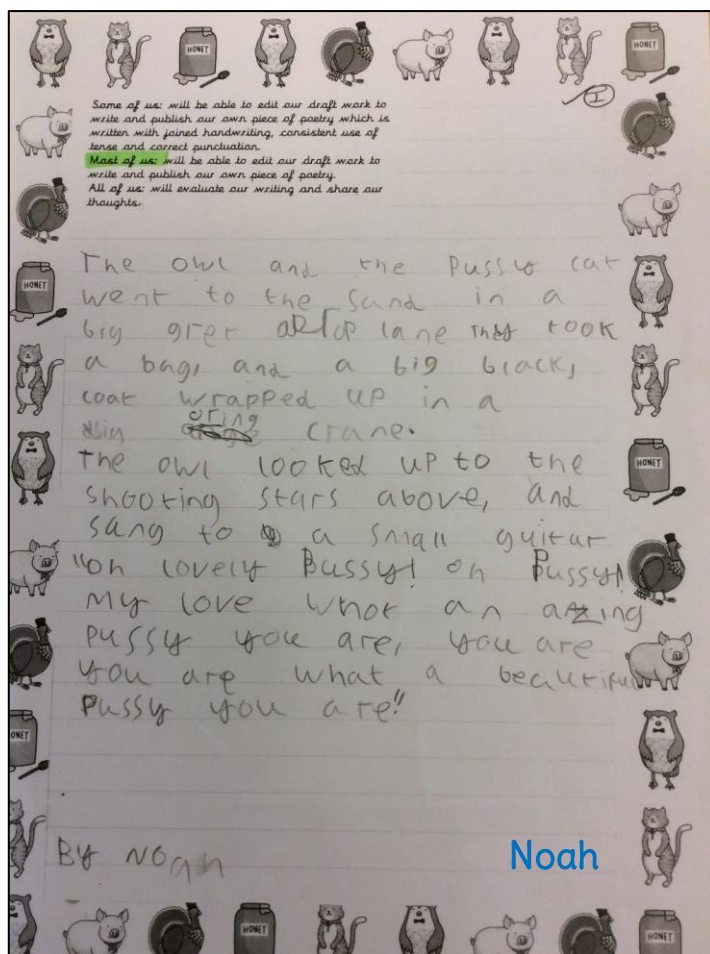 HONEY
HONEY
I
Some of us: will be able to edit our draft work to
write and publish our own piece of poetry which is
written with joined handwriting, consistent use of
tense and correct punctuation.
Most of us: will be able to edit our draft work to
write and publish our own piece of poetry.
All of us: will evaluate our writing and share our
thoughts.
HONEY
The owl and the Pussy cat
went to the sand in a
big grer lane They took
a bag, and a big black,
coat wrapped up in a
oring
crane.
HONEY
The owl looked up to the
shooting stars above, and
sang to a small guitar
"oh lovely Pussy! oh Pussy!
My love whot an azing
Pussy you are, you are
you are what a beautiful
Pussy you are!"
HONEY
By Noah
Noah
HONEY
HONEY